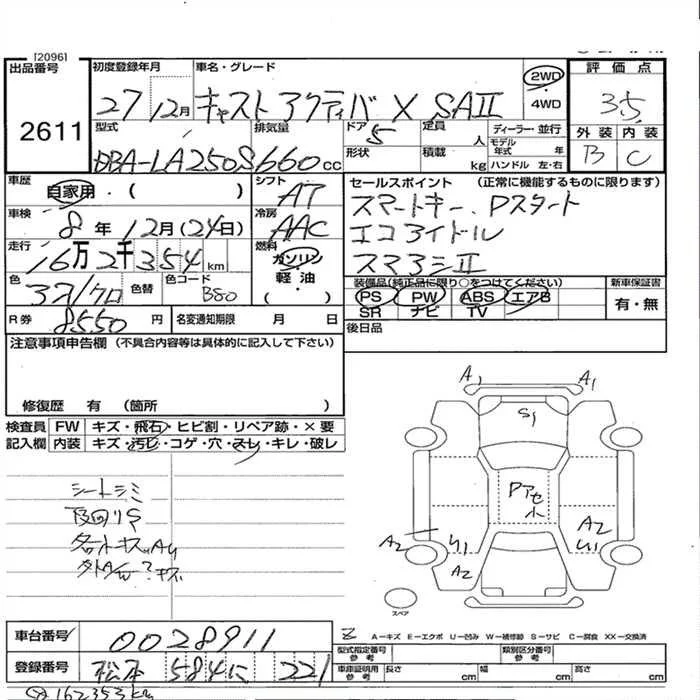 [2096]
出品番号
2611
初度登録年月
27/12月
車名・グレード
キャスト アクティバ X SAII
2WD
・
4WD
評価点
3.5
外装 内装
B C
型式
DBA-LA250S
排気量
660cc
ドア
5
形状
定員
人
積載
kg
ディーラー・並行
モデル年式 年
ハンドル 左・右
車歴
自家用・( )
シフト
AT
車検
8年12月(24日)
冷房
AAC
走行
16万2千354km
燃料
ガソリン
軽油
( )
色
色替
色コード
R券
8550円
名変通知期限 月 日
セールスポイント (正常に機能するものに限ります)
スマートキー、Pスタート
エコアイドル
スマアシII
装備品(純正品に限り○をつけてください)
PS PW ABS エアB
SR ナビ TV
新車保証書
有・無
後日品
注意事項申告欄 (不具合内容等は具体的に記入して下さい)
修復歴 有 (箇所 )
検査員 FW キズ・飛石・ヒビ割・リペア跡・×要
記入欄 内装 キズ・汚レ・コゲ・穴・スレ・キレ・破レ
シートシミ
A1 A1
S1
Pアセ
小
A2
A2
A2
スペア
A−キズ E−エクボ U−凹み W−補修跡 S−サビ C−腐食 XX−交換済
車台番号
0028911
登録番号
松本 584 に 221
型式指定番号
参考
類別区分番号
参考
車庫証明用
参考
長さ cm
幅 cm
高さ cm
162353km